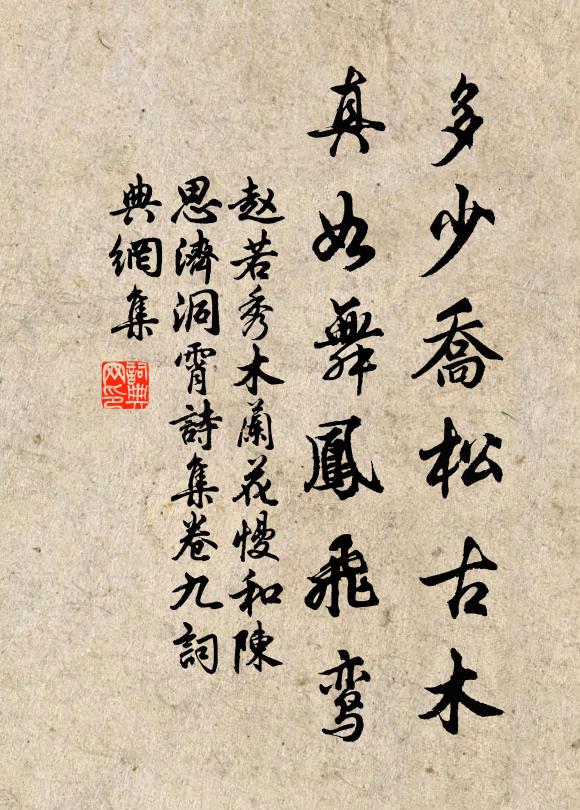 多少喬松古木
真如舞鳳飛鸾
赵若秀木蘭花慢和陳
思濟洞霄詩集卷九詞
典網集
詞典網印